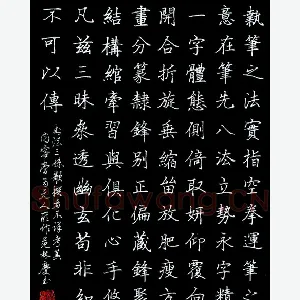 執筆之法實指空拳運筆之
意在筆先八法立勢永字精
一字體態側倚取妍仰覆向
開合折旋垂縮放肥瘦方
畫分篆隸鋒別正偏藏鋒聚
結構綰牽習與俱化心手攸
凡茲三昧參透幽玄苟非知
不可以傳